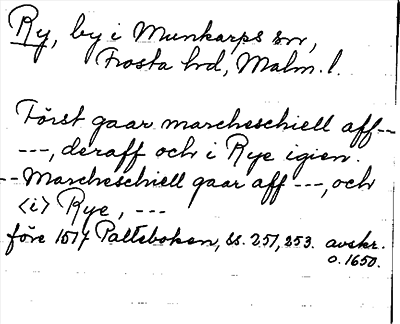 Ry, by i Munkarps sn,
Frosta hd, Malm. l.
Först gaar marcheschiell aff --
---, deraff och i Rye igien.
-- Marcheschiell gaar aff ---, och
<i> Rye, ---
före 1514 Palteboken, ss. 251, 253. avskr.
o. 1650.